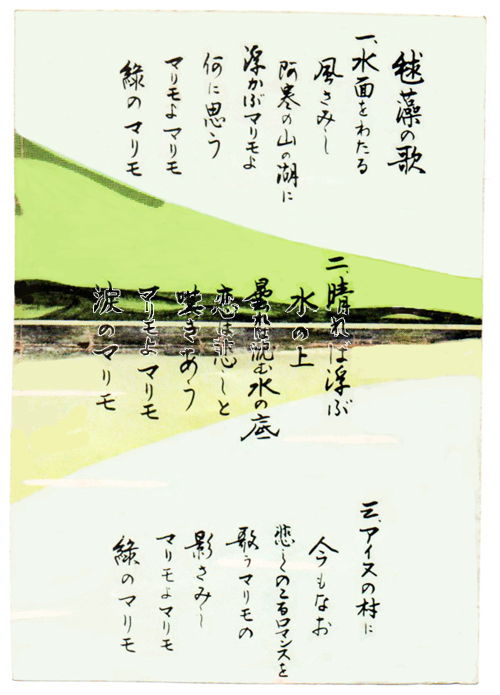 毬藻の歌
一、水面をわたる
風さみし
阿寒の山の湖に
浮かぶマリモよ
何に思う
マリモよマリモ
緑のマリモ
二、晴れば浮ぶ
水の上
曇れば沈む水の底
恋は悲しと
嘆きあう
マリモよマリモ
涙のマリモ
三、アイヌの村に
今もなお
悲しくのこるロマンスを
歌うマリモの
影さみし
マリモよマリモ
緑のマリモ